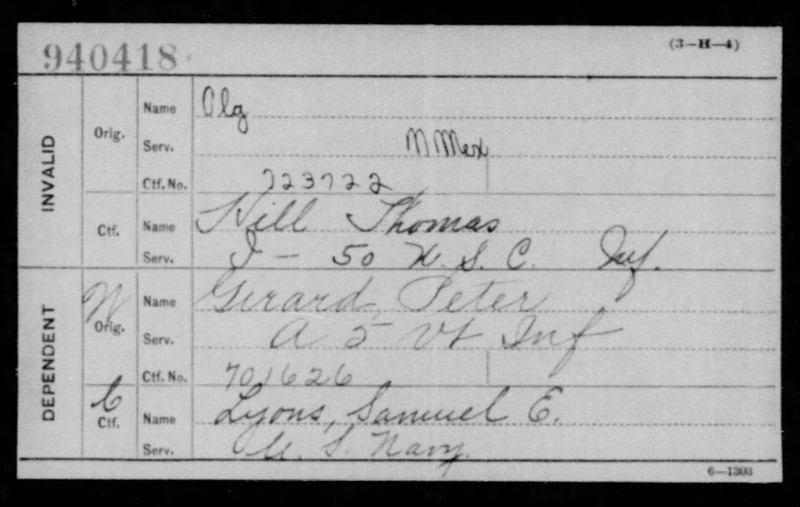 940418
(3-H-4)
INVALID
Orig.
Name Olg
Serv. N Mex
Ctf. No. 723722
Ctf.
Name Hill Thomas
Serv. I - 50 U. S. C. Inf.
DEPENDENT
W
Orig.
Name Girard, Peter
Serv. A 5 Vt Inf
Ctf. No. 701626
C
Ctf.
Name Lyons, Samuel E.
Serv. U. S. Navy.
6-1303